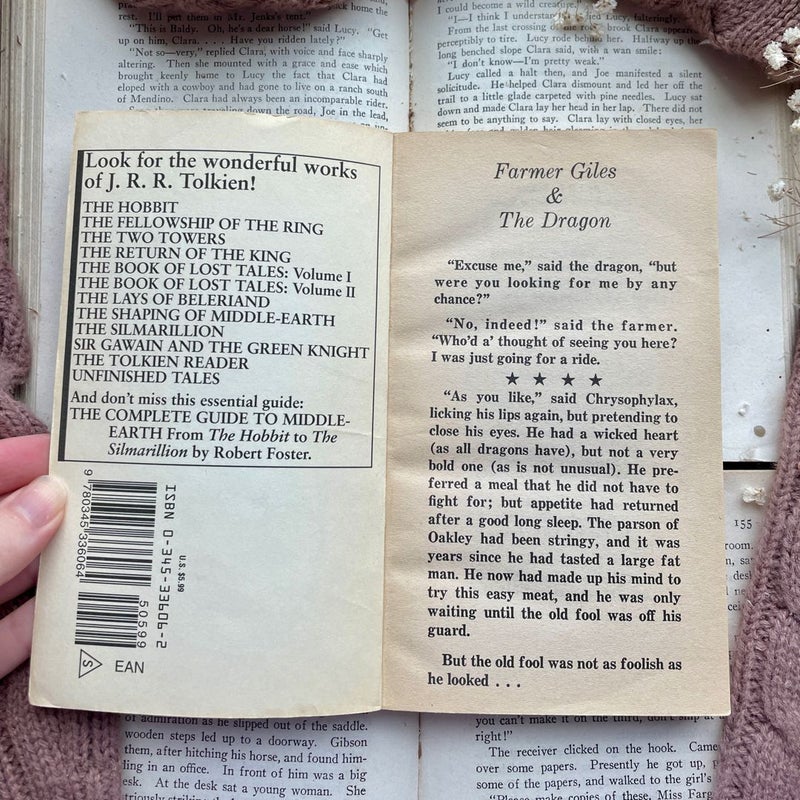 back home the
rest. I'll put them in Mr. Jenks's tent."
"This is Baldy. Oh, he's a dear horse!" said Lucy. "Get
up on him, Clara. . . . Have you ridden lately?"
"Not so—very," replied Clara, with voice and face sharply
altering. Then she mounted with a grace and ease which
brought keenly home to Lucy the fact that Clara had
eloped with a cowboy and had gone to live on a ranch south
of Mendino. Clara had always been an incomparable rider.
traveling down the road, Joe in the lead,
I could become a wild creature,
"I—I think I understand," replied Lucy, falteringly.
From the last crossing of the rocky brook Clara appeared
perceptibly to tire. Lucy rode behind her. Halfway up the
long benched slope Clara said, with a wan smile:
"I don't know—I'm pretty weak."
Lucy called a halt then, and Joe manifested a silent
solicitude. He helped Clara dismount and led her off the
trail to a little glade carpeted with pine needles. Lucy sat
down and made Clara lay her head in her lap. There did not
seem to be anything to say. Clara lay with closed eyes, her
Look for the wonderful works
of J. R. R. Tolkien!
THE HOBBIT
THE FELLOWSHIP OF THE RING
THE TWO TOWERS
THE RETURN OF THE KING
THE BOOK OF LOST TALES: Volume I
THE BOOK OF LOST TALES: Volume II
THE LAYS OF BELERIAND
THE SHAPING OF MIDDLE-EARTH
THE SILMARILLION
SIR GAWAIN AND THE GREEN KNIGHT
THE TOLKIEN READER
UNFINISHED TALES
And don't miss this essential guide:
THE COMPLETE GUIDE TO MIDDLE-
EARTH From The Hobbit to The
Silmarillion by Robert Foster.
9 780345 336064
ISBN 0-345-33606-2
U.S. $5.99
50599
S
EAN
Farmer Giles
&
The Dragon
"Excuse me," said the dragon, "but
were you looking for me by any
chance?"
"No, indeed!" said the farmer.
"Who'd a' thought of seeing you here?
I was just going for a ride.
★ ★ ★ ★
"As you like," said Chrysophylax,
licking his lips again, but pretending to
close his eyes. He had a wicked heart
(as all dragons have), but not a very
bold one (as is not unusual). He pre-
ferred a meal that he did not have to
fight for; but appetite had returned
after a good long sleep. The parson of
Oakley had been stringy, and it was
years since he had tasted a large fat
man. He now had made up his mind to
try this easy meat, and he was only
waiting until the old fool was off his
guard.
But the old fool was not as foolish as
he looked . . .
155
room.
of admiration as he slipped out of the saddle.
wooden steps led up to a doorway. Gibson
them, after hitching his horse, and found him-
ling in an office. In front of him was a big
esk. At the desk sat a young woman. She
you can't make it on the third, don't ship at
right!"
The receiver clicked on the hook.
over some papers. Presently he got up,
some of the papers, and walked to the girl's
"Please make copies of these, Miss